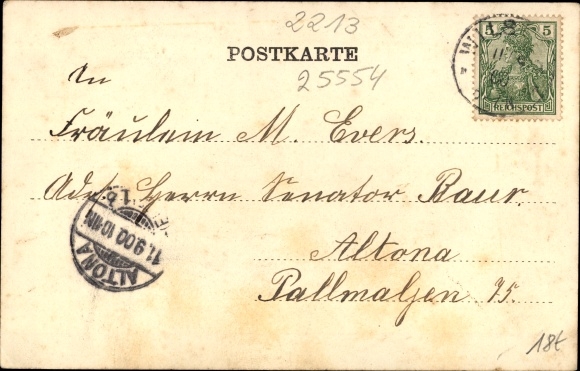 2213
POSTKARTE
25554
5 5
REICHSPOST
An
Fräulein M. Evers.
Adr. Herrn Senator Baur.
Altona
Pallmaljen 75.
ALTONA
11.9.00.10-11N
18t